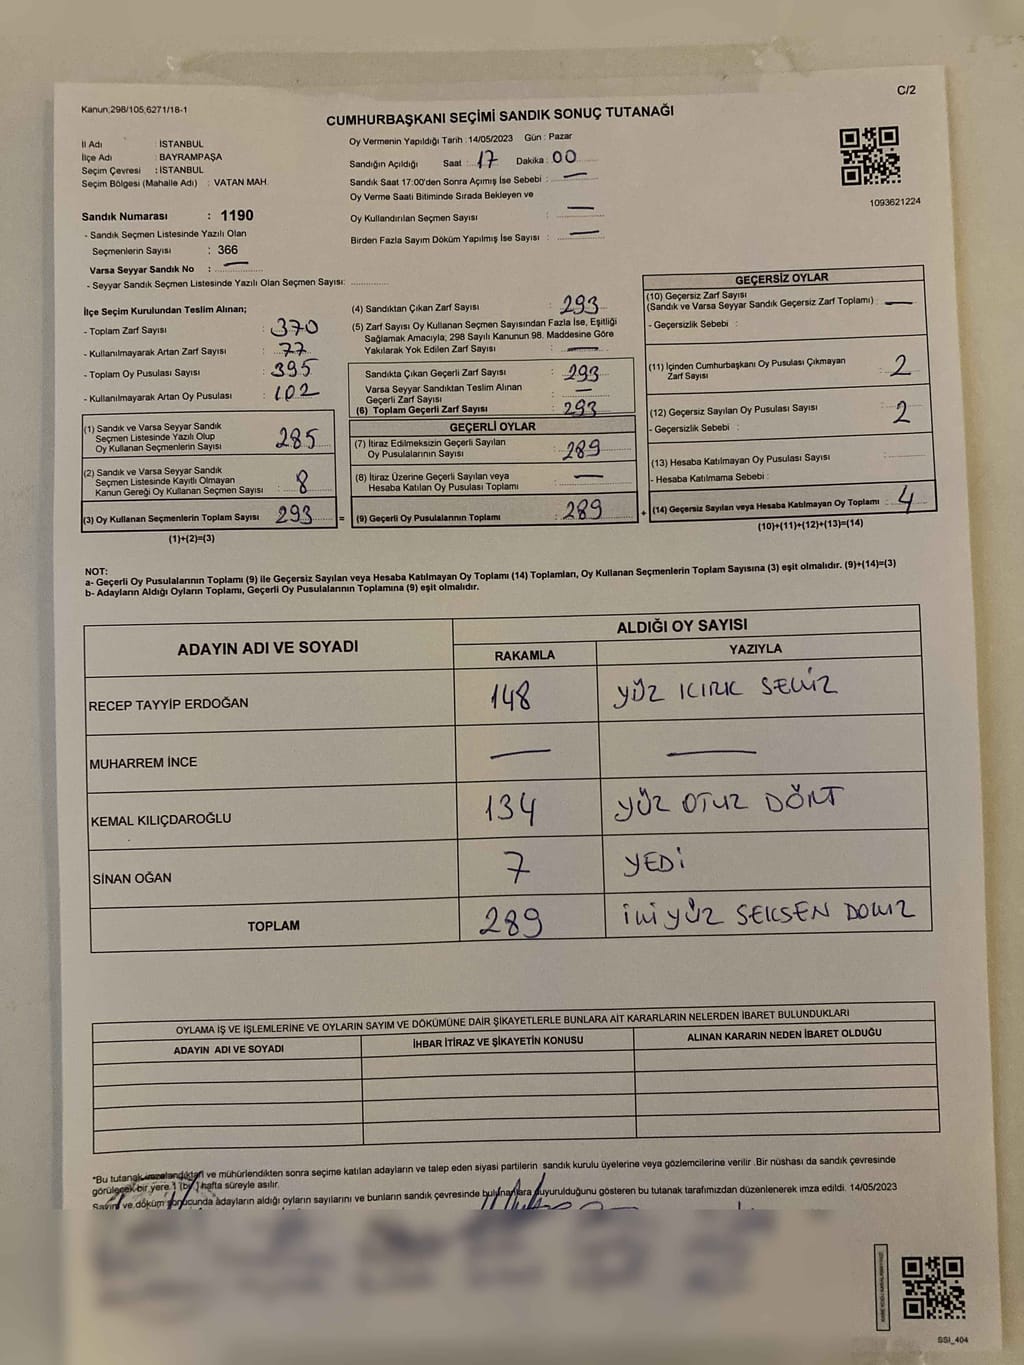 Kanun;298/105;6271/18-1
C/2
CUMHURBAŞKANI SEÇİMİ SANDIK SONUÇ TUTANAĞI
İl Adı : İSTANBUL
İlçe Adı : BAYRAMPAŞA
Seçim Çevresi : İSTANBUL
Seçim Bölgesi (Mahalle Adı) : VATAN MAH.
Sandık Numarası : 1190
- Sandık Seçmen Listesinde Yazılı Olan
Seçmenlerin Sayısı : 366
Varsa Seyyar Sandık No : —
- Seyyar Sandık Seçmen Listesinde Yazılı Olan Seçmen Sayısı:
Oy Vermenin Yapıldığı Tarih : 14/05/2023 Gün : Pazar
Sandığın Açıldığı Saat : 17 Dakika : 00
Sandık Saat 17:00'den Sonra Açımış İse Sebebi : —
Oy Verme Saati Bitiminde Sırada Bekleyen ve
Oy Kullandırılan Seçmen Sayısı : —
Birden Fazla Sayım Döküm Yapılmış İse Sayısı : —
1093621224
İlçe Seçim Kurulundan Teslim Alınan;
- Toplam Zarf Sayısı : 370
- Kullanılmayarak Artan Zarf Sayısı : 77
- Toplam Oy Pusulası Sayısı : 395
- Kullanılmayarak Artan Oy Pusulası : 102
(1) Sandık ve Varsa Seyyar Sandık
Seçmen Listesinde Yazılı Olup
Oy Kullanan Seçmenlerin Sayısı 285
(2) Sandık ve Varsa Seyyar Sandık
Seçmen Listesinde Kayıtlı Olmayan
Kanun Gereği Oy Kullanan Seçmen Sayısı 8
(3) Oy Kullanan Seçmenlerin Toplam Sayısı 293 =
(1)+(2)=(3)
(4) Sandıktan Çıkan Zarf Sayısı : 293
(5) Zarf Sayısı Oy Kullanan Seçmen Sayısından Fazla İse, Eşitliği
Sağlamak Amacıyla, 298 Sayılı Kanunun 98. Maddesine Göre
Yakılarak Yok Edilen Zarf Sayısı : —
Sandıkta Çıkan Geçerli Zarf Sayısı : 293
Varsa Seyyar Sandıktan Teslim Alınan
Geçerli Zarf Sayısı : —
(6) Toplam Geçerli Zarf Sayısı : 293
GEÇERLİ OYLAR
(7) İtiraz Edilmeksizin Geçerli Sayılan
Oy Pusulalarının Sayısı : 289
(8) İtiraz Üzerine Geçerli Sayılan veya
Hesaba Katılan Oy Pusulası Toplamı : —
(9) Geçerli Oy Pusulalarının Toplamı : 289 +
GEÇERSİZ OYLAR
(10) Geçersiz Zarf Sayısı
(Sandık ve Varsa Seyyar Sandık Geçersiz Zarf Toplamı) : —
- Geçersizlik Sebebi :
(11) İçinden Cumhurbaşkanı Oy Pusulası Çıkmayan
Zarf Sayısı : 2
(12) Geçersiz Sayılan Oy Pusulası Sayısı : 2
- Geçersizlik Sebebi :
(13) Hesaba Katılmayan Oy Pusulası Sayısı :
- Hesaba Katılmama Sebebi :
(14) Geçersiz Sayılan veya Hesaba Katılmayan Oy Toplamı : 4
(10)+(11)+(12)+(13)=(14)
NOT:
a- Geçerli Oy Pusulalarının Toplamı (9) ile Geçersiz Sayılan veya Hesaba Katılmayan Oy Toplamı (14) Toplamları, Oy Kullanan Seçmenlerin Toplam Sayısına (3) eşit olmalıdır. (9)+(14)=(3)
b- Adayların Aldığı Oyların Toplamı, Geçerli Oy Pusulalarının Toplamına (9) eşit olmalıdır.
ADAYIN ADI VE SOYADI
ALDIĞI OY SAYISI
RAKAMLA YAZIYLA
RECEP TAYYİP ERDOĞAN 148 YÜZ KIRK SEKİZ
MUHARREM İNCE — —
KEMAL KILIÇDAROĞLU 134 YÜZ OTUZ DÖRT
SİNAN OĞAN 7 YEDİ
TOPLAM 289 İKİ YÜZ SEKSEN DOKUZ
OYLAMA İŞ VE İŞLEMLERİNE VE OYLARIN SAYIM VE DÖKÜMÜNE DAİR ŞİKAYETLERLE BUNLARA AİT KARARLARIN NELERDEN İBARET BULUNDUKLARI
ADAYIN ADI VE SOYADI İHBAR İTİRAZ VE ŞİKAYETİN KONUSU ALINAN KARARIN NEDEN İBARET OLDUĞU
*Bu tutanak imzalandıktan ve mühürlendikten sonra seçime katılan adayların ve talep eden siyasi partilerin sandık kurulu üyelerine veya gözlemcilerine verilir .Bir nüshası da sandık çevresinde
görülecek bir yere 1 (bir) hafta süreyle asılır.
Sayım ve döküm sonucunda adayların aldığı oyların sayılarını ve bunların sandık çevresinde bulunanlara duyurulduğunu gösteren bu tutanak tarafımızdan düzenlenerek imza edildi. 14/05/2023
SSI_404